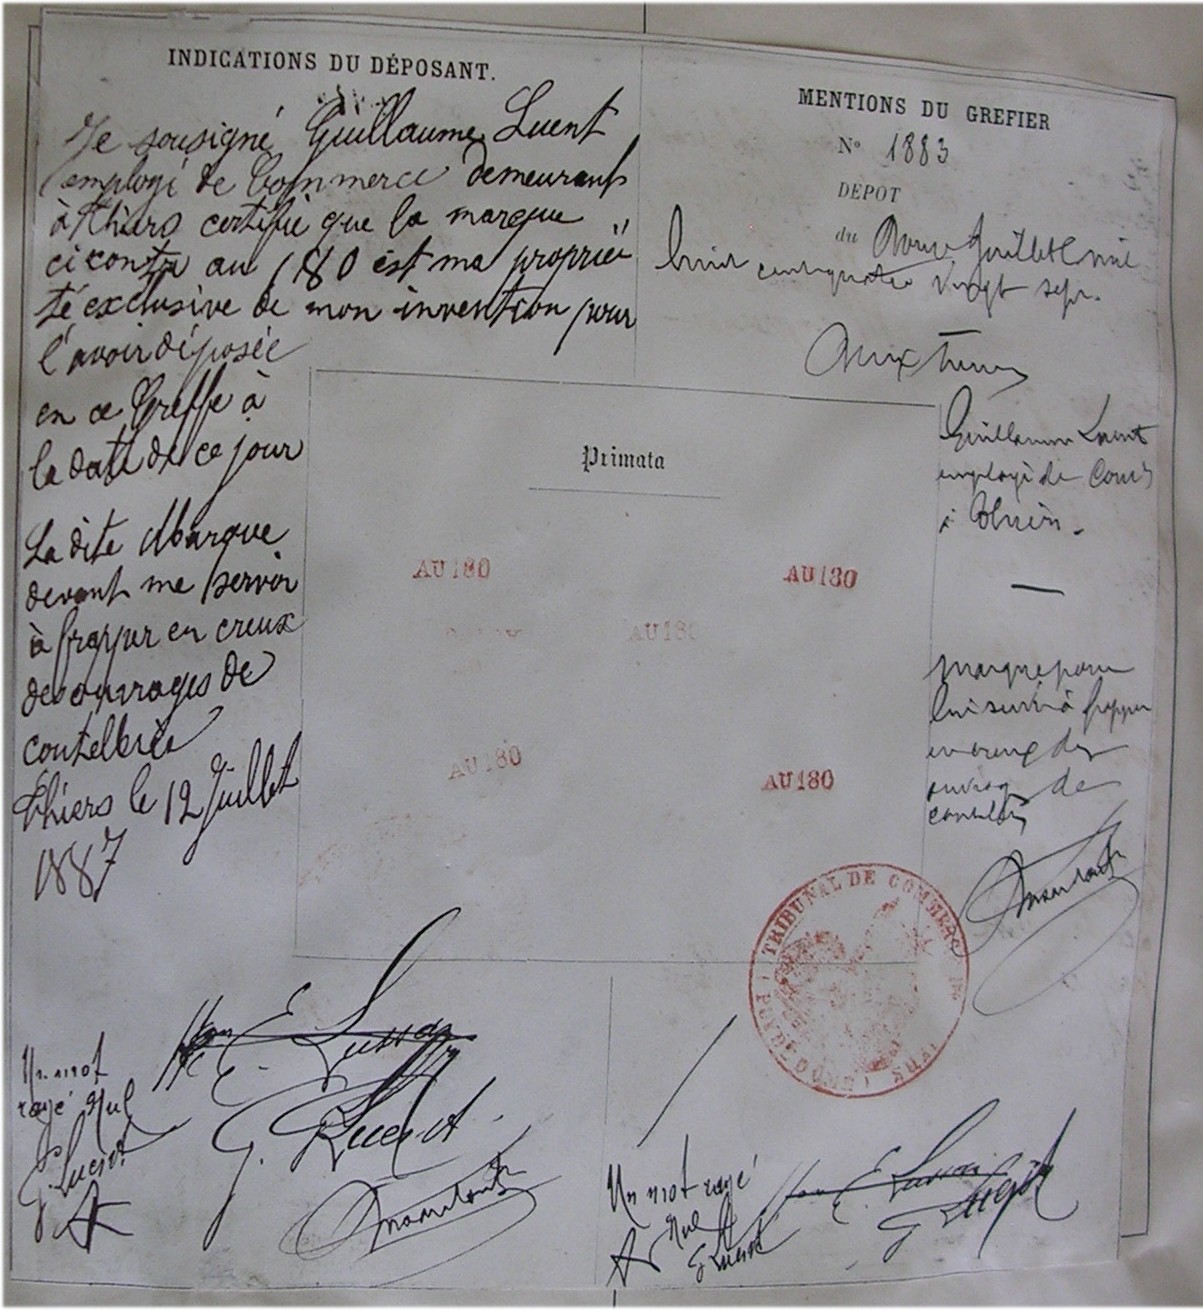 INDICATIONS DU DÉPOSANT.
Je sousigné Guillaume Luent
employé de Commerce demeurant
à Thiers certifie que la marque
ci contre au 180 est ma proprié
té exclusive de mon invention pour
l'avoir déposée
en ce Greffe à
la date de ce jour
La dite Marque
devant me servir
à frapper en creux
des ouvrages de
coutellerie
Thiers le 12 Juillet
1887
MENTIONS DU GREFIER
No 1883
DÉPOT
du Douze Juillet mil
huit cent quatre vingt sept.
Guillaume Luent
employé de Com
à Thiers.
Marque pour
lui servir à frapper
en creux des
ouvrages de
Primata
AU 180
AU 180
AU 180
AU 180
AU 180
TRIBUNAL DE COMMERCE
THIERS
PUY-DE-DÔME
Un mot
rayé nul
G. Luent
E.
G. Luent
Un mot rayé
nul
G Luent
E.
G Luent